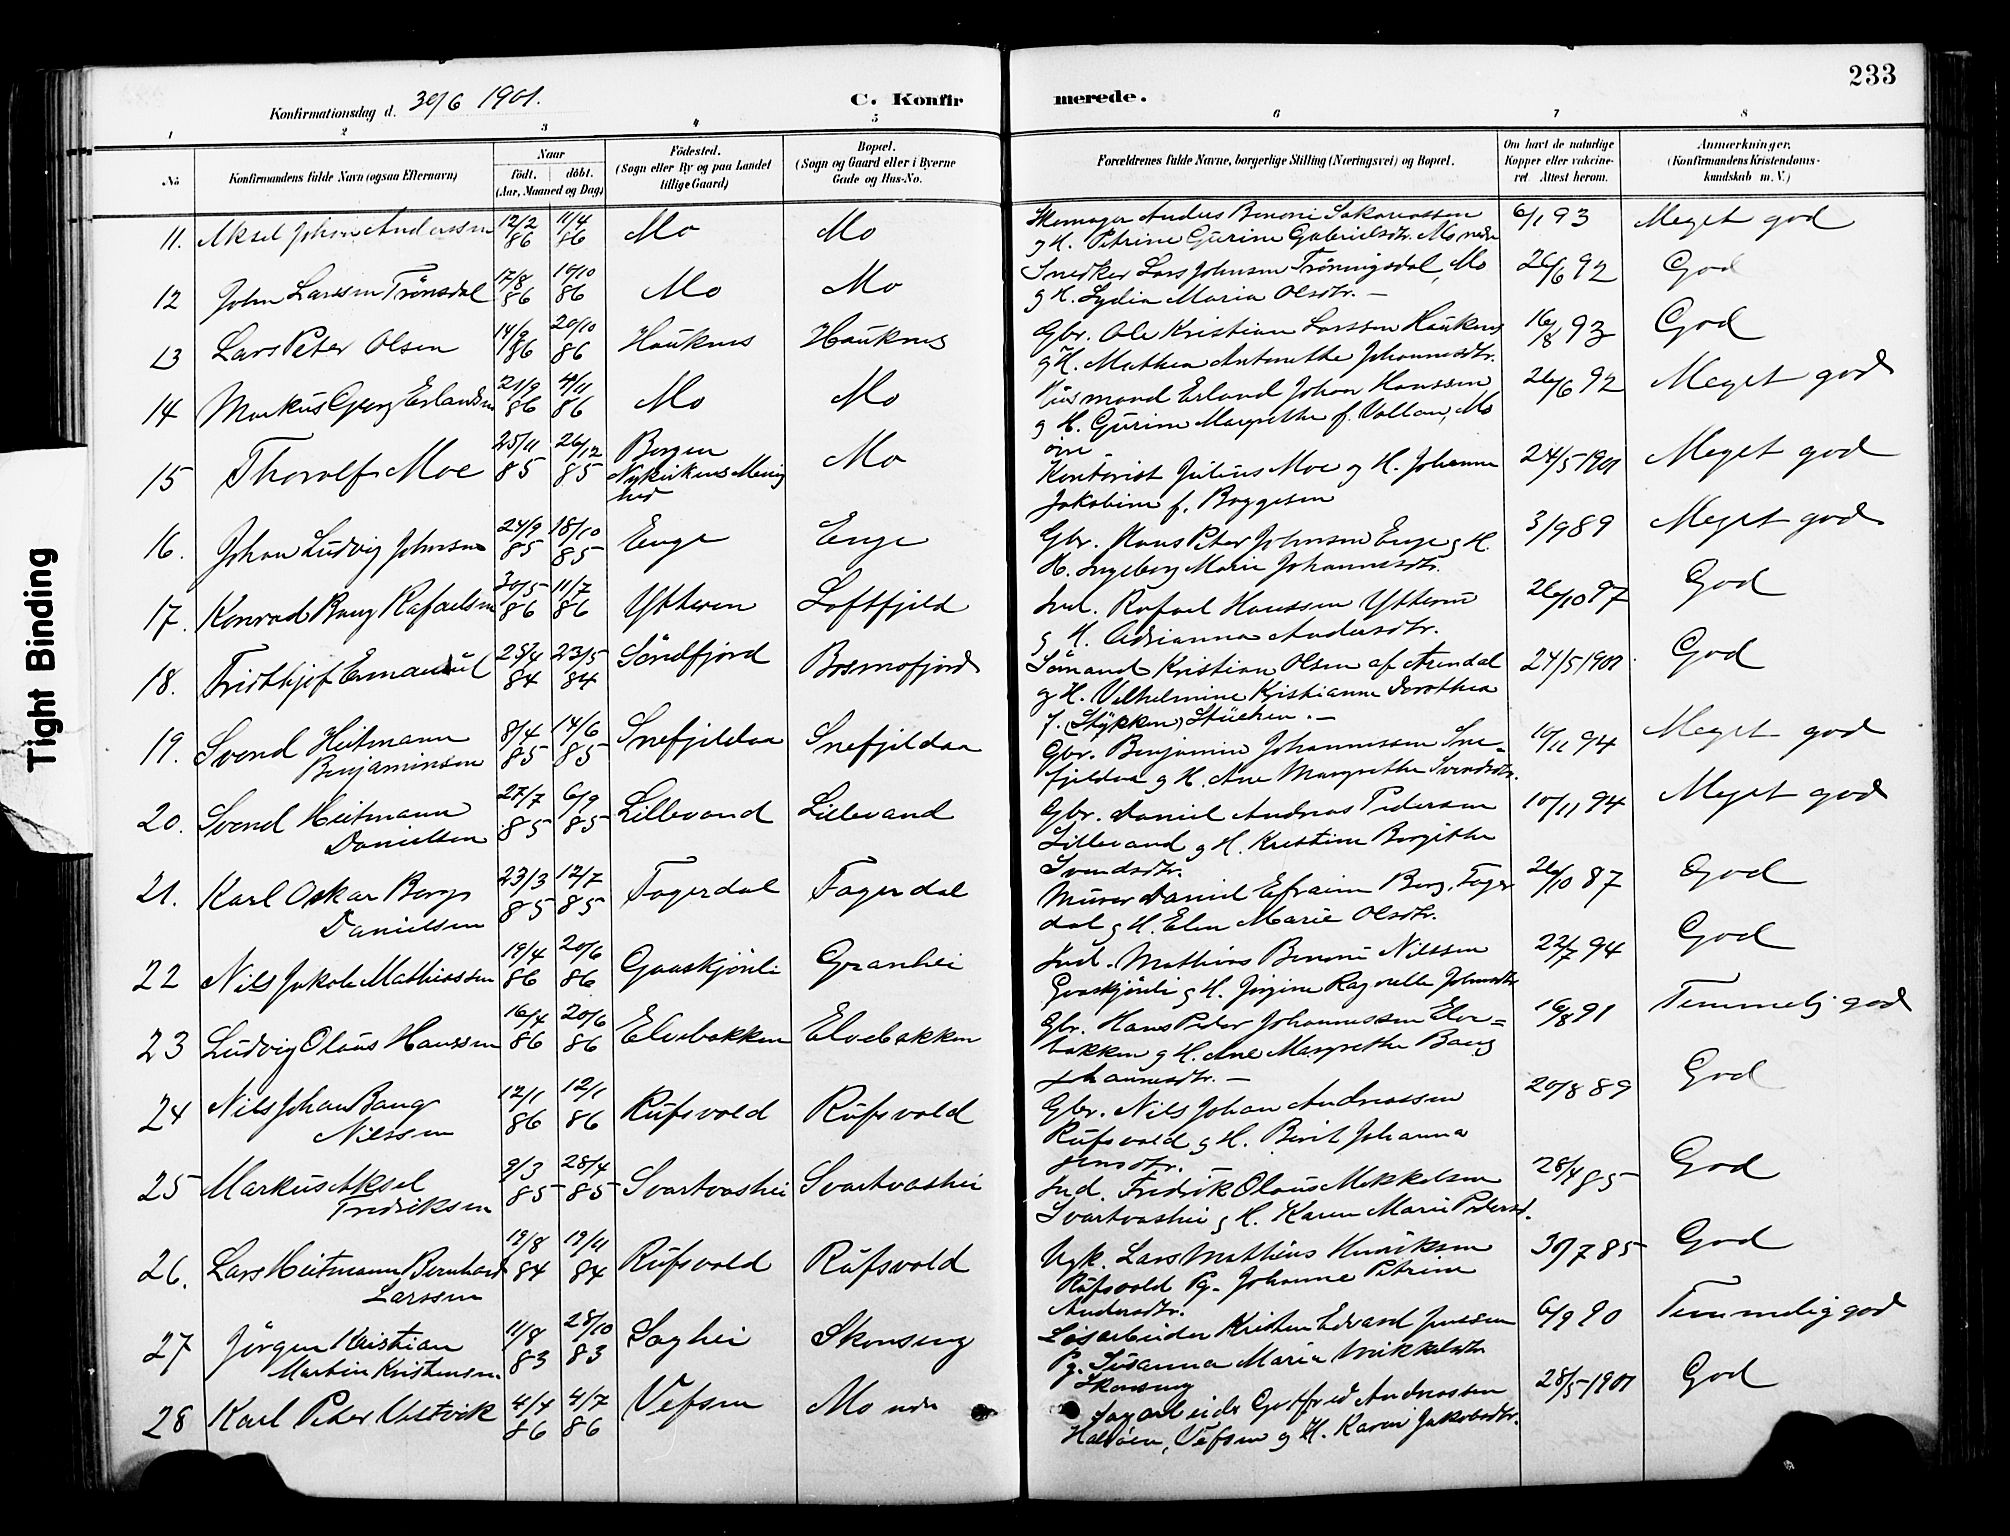 233
Konfirmationsdag d. 30/6 1901.
C. Konfirmerede.
1 2 3 4 5 6 7 8
No
Konfirmandens fulde Navn (ogsaa Efternavn)
Naar
født. døbt.
(Aar, Maaned og Dag)
Fødested.
(Sogn eller By og paa Landet
tillige Gaard)
Bopæl.
(Sogn og Gaard eller i Byerne
Gade og Hus-No.
Forældrenes fulde Navne, borgerlige Stilling (Næringsvei) og Bopæl.
Om havt de naturlige
Kopper eller vakcine-
ret. Attest herom.
Anmærkninger.
(Konfirmandens Kristendoms-
kundskab m. V.)
11. Aksel Johan Anderssen 12/2 86 11/4 86 Mo Mo
Skomager Anders Benoni Sakariassen
g H. Petrine Gurine Gabrielsdtr. Mo nedre
6/1 93 Meget god
12 John Larssen Trönsdal 17/8 86 10/10 86 Mo Mo
Snedker Lars Johnsen Tröningsdal, Mo
g H. Lydia Maria Olsdtr. —
26/6 92 God
13 Lars Peter Olsen 14/9 86 20/10 86 Hauknes Hauknes
Gbr. Ole Kristian Larssen Hauknes
g H. Mathea Antonethe Johannesdtr.
16/8 93 God
14 Markus Georg Erlandsen 21/9 86 4/11 86 Mo Mo
Husmand Erland Johan Hanssen
g H. Gurine Margrethe f. Vollan, Mo
övre
26/6 92 Meget god
15 Thorolf Moe 25/11 85 26/12 85 Bergen
Nykirkens Menig
hed Mo
Kontorist Julius Moe g H. Johanne
Jakobine f. Boggesen
24/5 1901 Meget god
16. Johan Ludvig Johnsen 24/9 85 18/10 85 Enge Enge
Gbr. Hans Peter Johnsen Enge g H.
H. Ingeborg Marie Johannesdtr.
3/9 89 Meget god
17. Konrad Bang Rafaelsen 30/5 86 11/7 86 Ytteren Loftfjeld
Ind. Rafael Hanssen Ytteren
g H. Adrianna Andersdtr.
26/10 97 God
18. Fridthjof Emanuel 25/4 84 23/5 84 Söndfjord Bosmofjord
Sömand Kristian Olsen af Arendal
g H. Vilhelmine Kristianne Dorothea
f. (Stykken) Stücken. —
24/5 1901. God
19. Svend Heitmann
Benjaminsen 8/4 85 14/6 85 Snefjeldaa Snefjeldaa
Gbr. Benjamin Johannessen Sne-
fjeldaa g H. Ane Margrethe Svendsdtr.
10/11 94 Meget god
20. Svend Heitmann
Danielsen 27/7 85 6/9 85 Lillevand Lillevand
Gbr. Daniel Andreas Pedersen
Lillevand g H. Kristine Bergithe
Svendsdtr.
10/11 94 Meget god
21. Karl Oskar Berg
Danielsen 23/3 85 12/7 85 Fagerdal Fagerdal
Murer Daniel Efraim Berg, Fager
dal g H. Elen Marie Olsdtr.
26/10 87 God
22 Nils Jakob Mathiassen 19/4 86 20/6 86 Graaskjönli Granhei
Ind. Mathias Benoni Nilssen
Graaskjönli g H. Jörgine Ragnelle Johnsdtr
22/7 94 God
23 Ludvig Olaus Hanssen 16/4 86 20/6 86 Elvebakken Elvebakken
Gbr. Hans Peter Johannessen Elve-
bakken g H. Ane Margrethe Bang
Johannesdtr. —
16/8 91 Temmelig god
24 Nils Johan Bang
Nilssen 12/1 86 12/1 86 Rufsvold Rufsvold
Gbr. Nils Johan Andreassen
Rufsvold g H. Berit Johanna
Jensdtr. —
20/8 89 God
25 Markus Aksel
Fredriksen 9/3 85 28/4 85 Svartvashei Svartvashei
Ind. Fredrik Olaus Mikkelsen
Svartvashei g H. Karen Marie Pedersd.
28/4 85 God
26. Lars Heitmann Bernhard
Larssen 19/8 84 19/11 84 Rufsvold Rufsvold
Ugk. Lars Mathias Henriksen
Rufsvold Pg. Johanne Petrine
Andersdtr.
30/7 85 God
27 Jörgen Kristian
Martin Kristensen. 11/8 83 28/10 83 Saghei Skonseng
Lösarbeider Kristen Edvard Jenssen
Pg. Susanna Maria Mikkelsdtr
Skonseng
6/9 90 Temmelig god
28 Karl Peter Ulstvik 4/4 86 4/7 86 Vefsen Mo nedre
Sagarbeider Gotfred Andreassen
Halsöen, Vefsen g H. Karen Jakobsdtr.
28/5 1901 God
Tight Binding